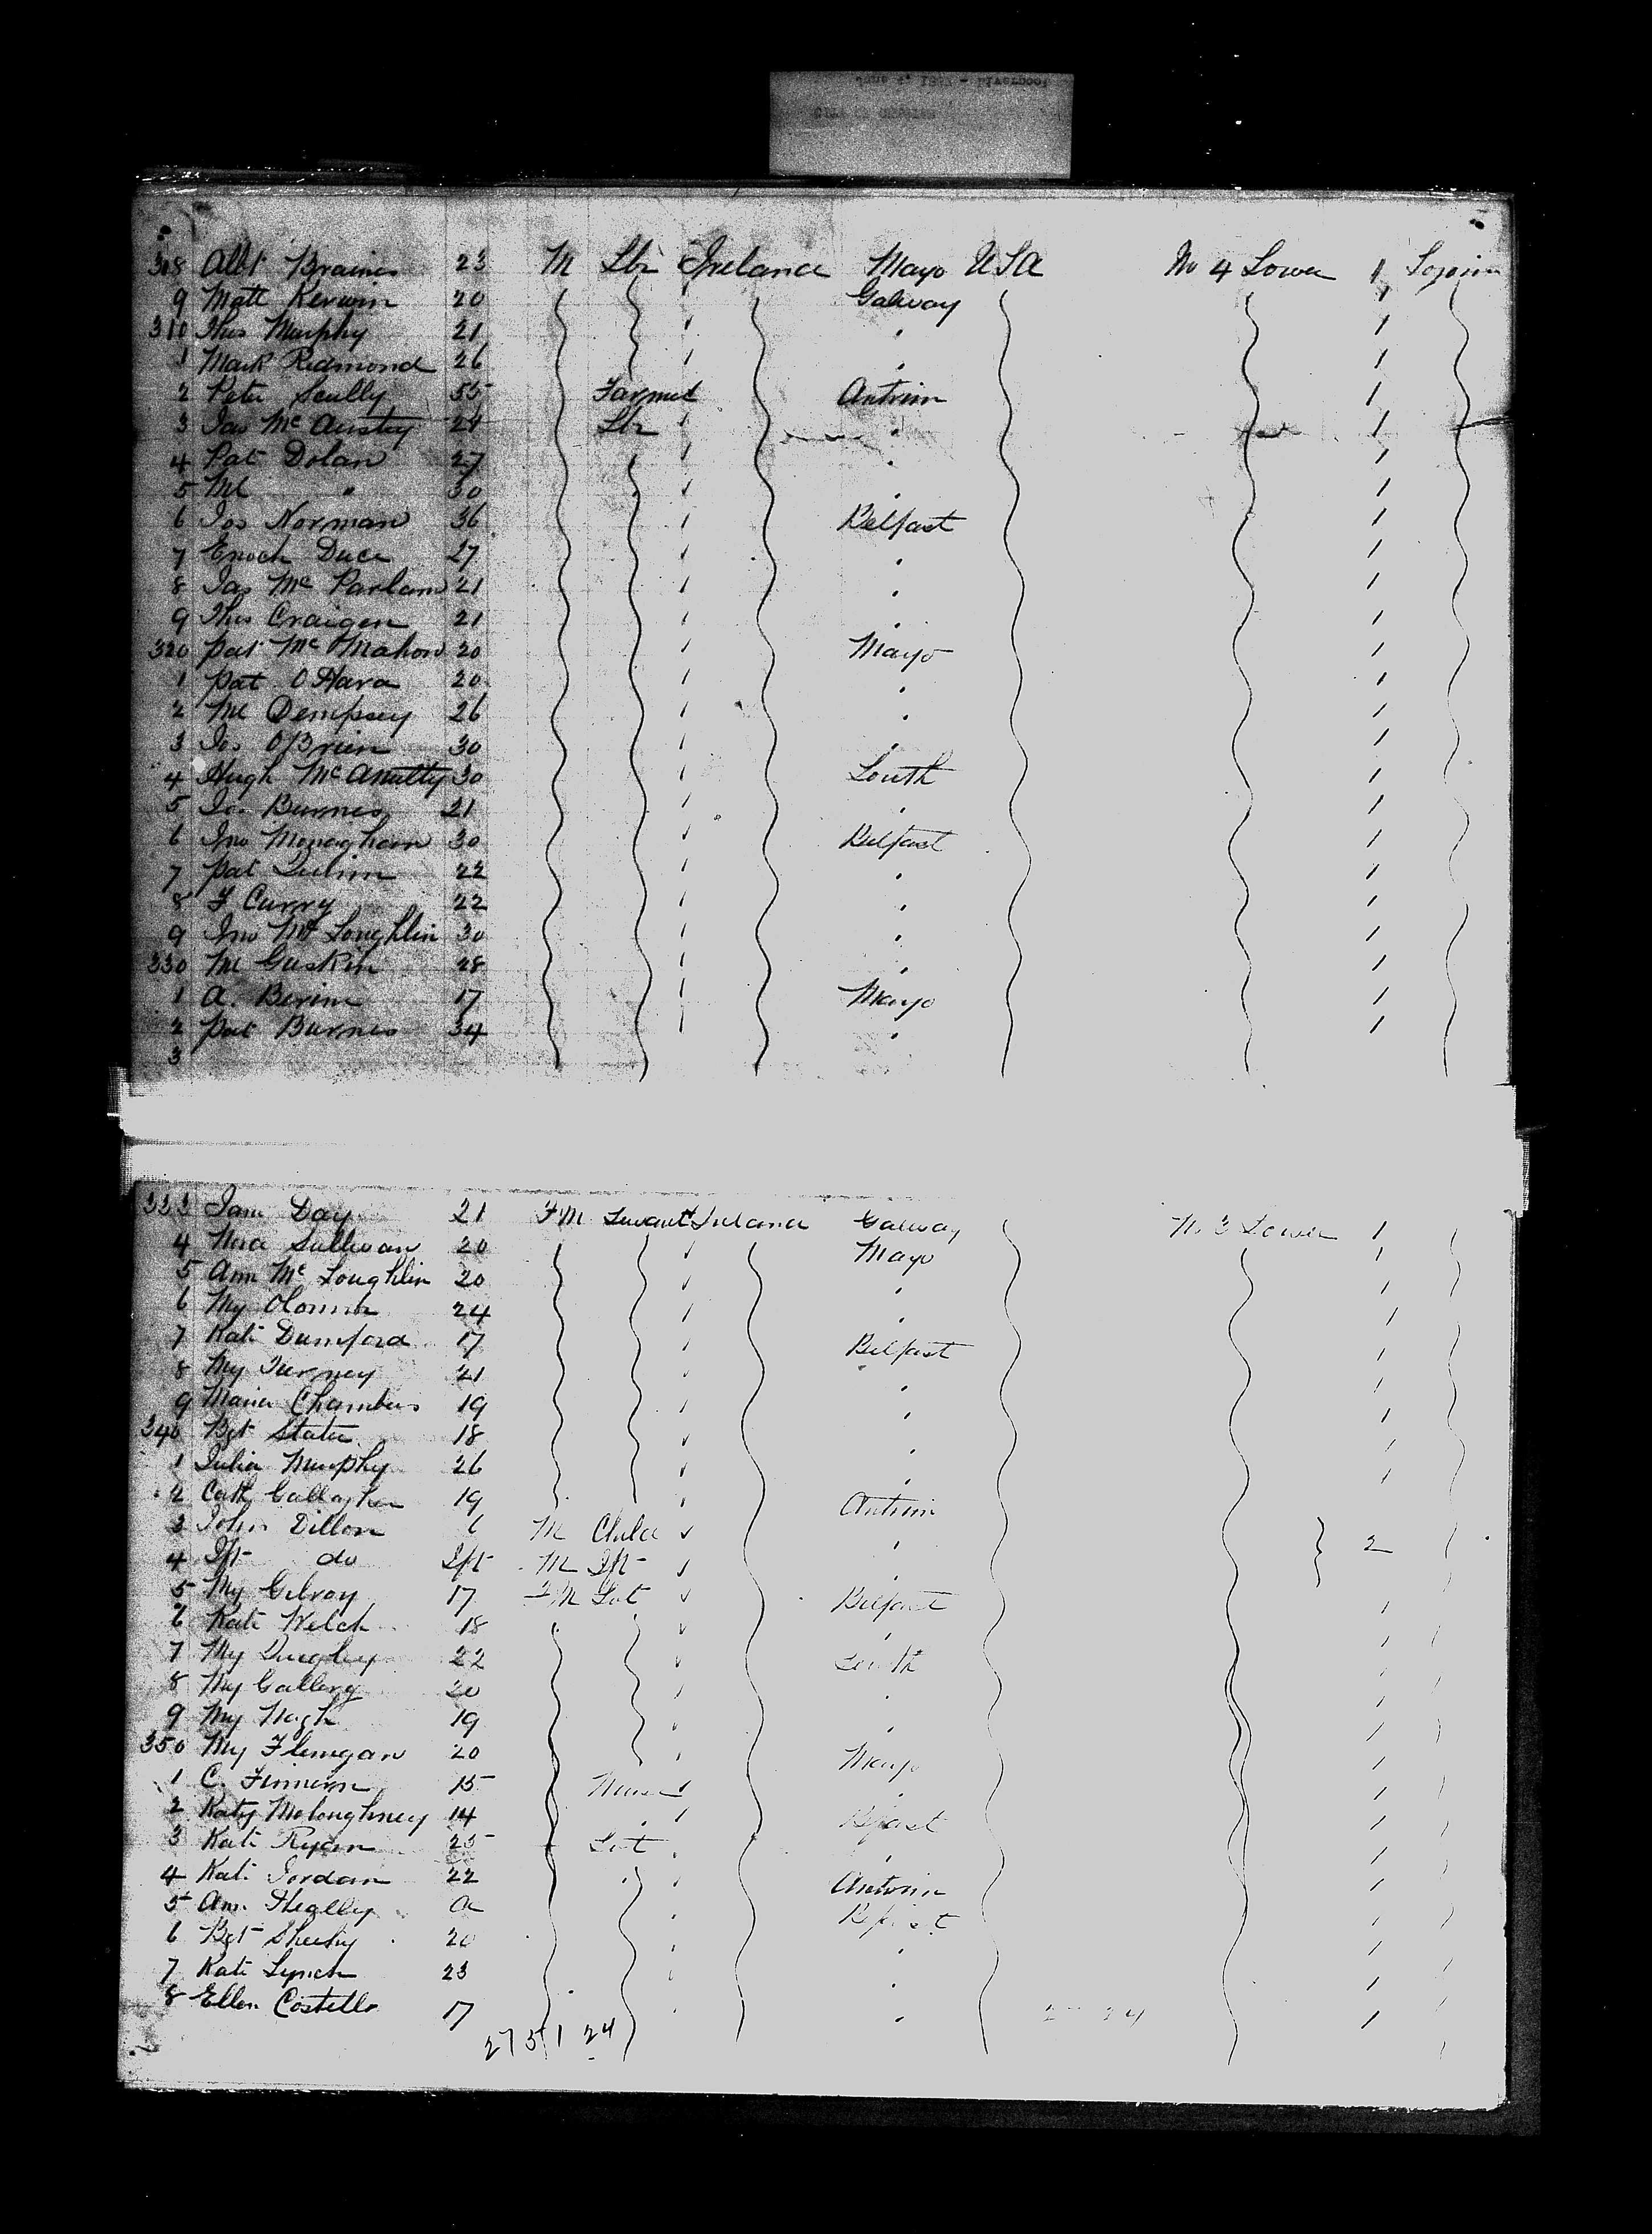 308 Albt Braines 23 M Lbr Ireland Mayo USA No 4 Lower 1
9 Matt Kerwin 20 Galway
310 Thos Murphy 21 "
1 Mark Redmond 26 "
2 Peter Scully 55 Farmer Antrim
3 Jas McAnsty 24 Lbr "
4 Pat Dolan 27 "
5 Ml " 30 "
6 Jos Norman 36 Belfast
7 Enoch Duce 27 "
8 Jas McParlam 21 "
9 Thos Craigen 21 "
320 Pat McMahon 20 Mayo
1 Pat O'Hara 20 "
2 Ml Dempsey 26 "
3 Jos O'Brien 30 "
4 Hugh McAnulty 30 Louth
5 Jos Burnes 21 "
6 Jno Monaghan 30 Belfast
7 Pat Quinn 22 "
8 F Curry 22 "
9 Jno McLoughlin 30 "
330 Ml Guskin 28 "
1 A. Berim 17 Mayo
2 Pat Burnes 34 "
3
333 Jam Day 21 F M Servant Ireland Galway No 3 Lower 1
4 Nora Sullivan 20 Mayo
5 Ann McLoughlin 20 "
6 My 24 "
7 Kate Dumford 17 Belfast
8 My Turney 21 "
9 Maria Chambers 19 "
340 Bgt Slater 18 "
1 Julia Murphy 26 "
2 Cath Gallagher 19 Antrim
3 John Dillon 6 M Child " 2
4 Ift do Ift M Ift
5 My Gilroy 17 F M Svt Belfast
6 Kate Welch 18 "
7 My Quigley 22 Louth
8 My Gallery 20 "
9 My Hugh 19 "
350 My Flinigan 20 Mayo
1 C. Finnern 15 Nurse "
2 Katy Moloughney 14 Belfast
3 Kate Ryan 25 Svt "
4 Kate Jordan 22 Antrim
5 Ann Heally a Belfast
6 Bgt Sheehy 20 "
7 Kate Lynch 23 "
8 Ellen Costello 17 "
27 51 24